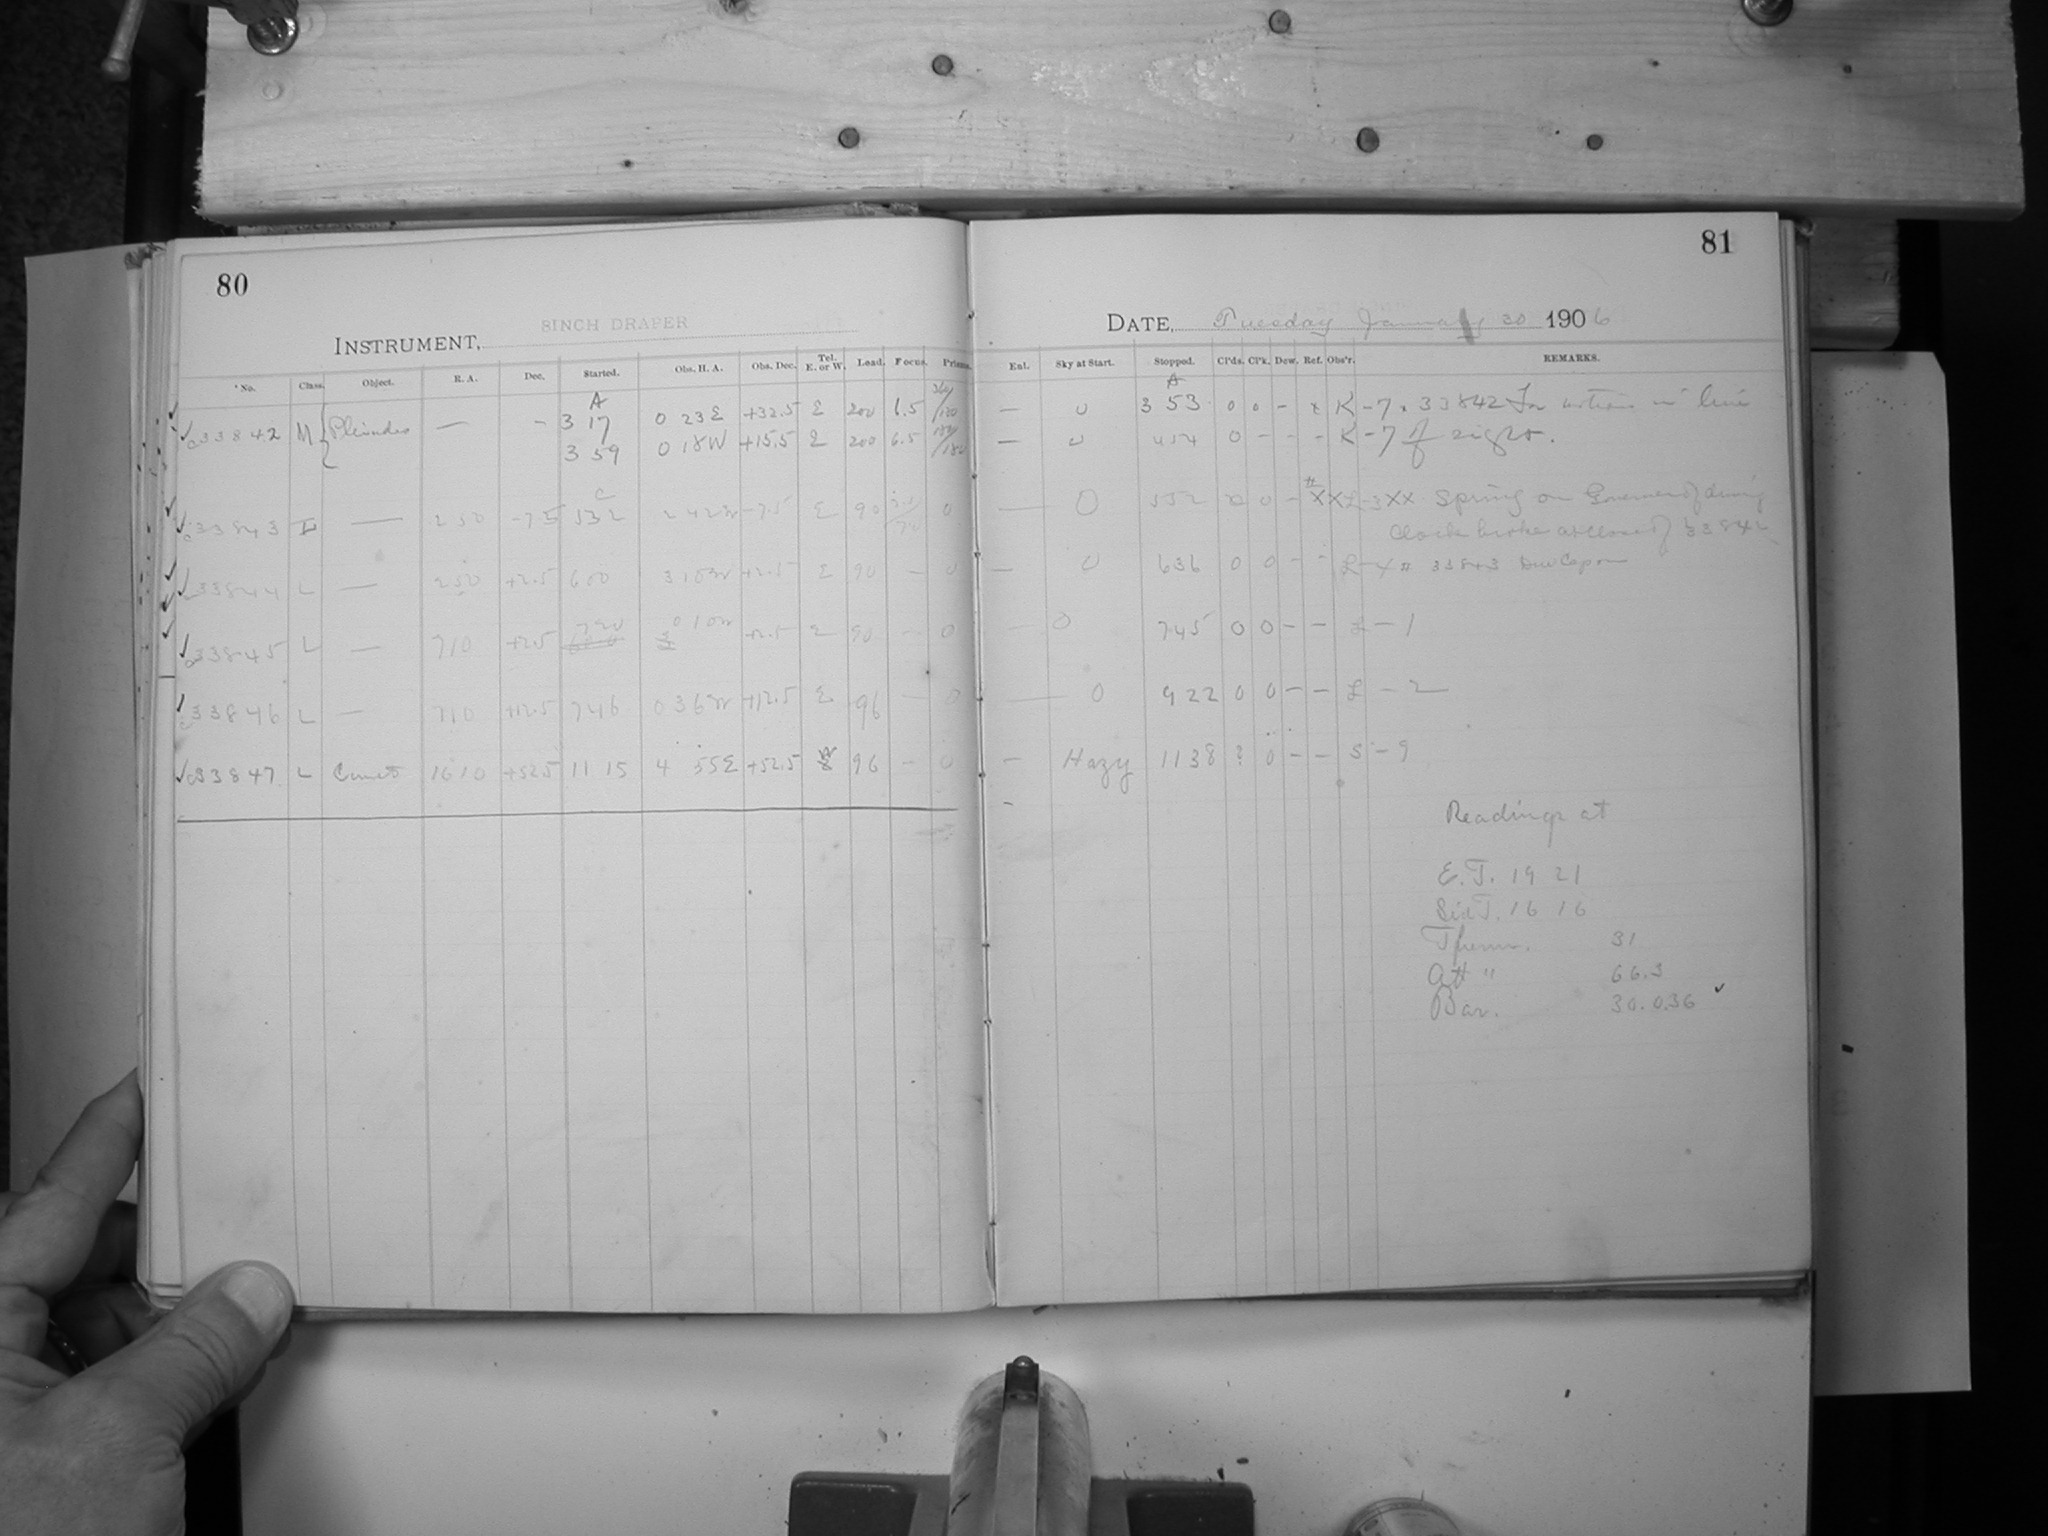 80
INSTRUMENT, 8INCH DRAPER
No. Class. Object. R. A. Dec. Started. Obs. H. A. Obs. Dec. Tel. E. or W. Load. Focus.
A
33842 M Pleiades — — 3 17 0 23 E +32.5 E 200
3 59 0 18W +15.5 E 200 6.5
C
33843 L — 2 50 -7.5 532 2 42W -7.5 E 90 0
33844 L — 250 +2.5 600 3 10W +2.5 E 90 — 0
33845 L — 710 +2.5 720 0 10W +2.5 E 90 — 0
33846 L — 710 +12.5 746 0 36W +12.5 E 96 — 0
33847 L Comet 1610 +52.5 11 15 4 55E +52.5 W 96 — 0
81
DATE, Tuesday January 30 1906
Enl. Sky at Start. Stopped. Cl'ds. Cl'k. Dew. Ref. Obs'r. REMARKS.
A
— 0 3 53 0 0 - x K - 7 x 33842 in line
— 0 454 0 - - - K - 7 of right.
— 0 552 0 - XX L - 3 XX Spring on Governor of driving
Clock broke at close of 33842
— 0 636 0 0 - - L - 4 # 33843 Dew Cap on
— 0 745 0 0 - - L - 1
— 0 922 0 0 - - L - 2
— Hazy 1138 ? 0 - - S - 9
Readings at
E.T. 19 21
Sid T. 16 16
Therm. 31
Att " 66.3
Bar. 30.036